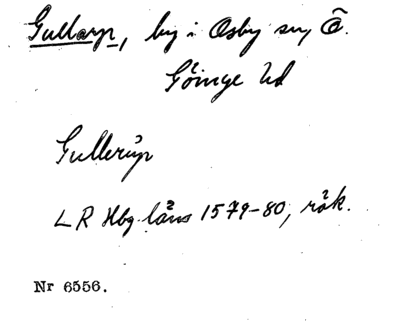 Gullarp, by i Osby sn, Ö.
Göinge hd
Gullerup
LR Hbg läns 1579-80, räk.
Nr 6556.